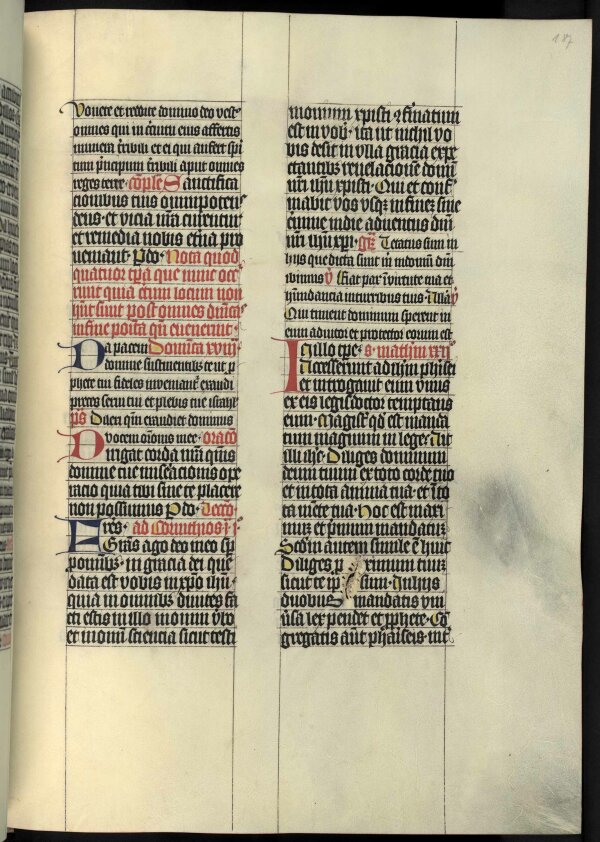 187
Vovete et reddite domino deo vestro
omnes qui in circuitu eius affertis
munera terribili et ei qui aufert spiritum
principum terribili aput omnes
reges terre · Comple Sanctifica
cionibus tuis omnipotens
deus · et vicia nostra curentur
et remedia nobis eterna pro
veniant · Per do · Nota quod
quatuor tempora que nunc occurrunt
quia certum locum non
habent sunt post omnes dominicas
in fine posita quando evenerint ·
Da pacem Dominica xviij
domine sustinentibus te ut prophete
tui fideles inveniantur exaudi
preces servi tui et plebis tue israhel
ps Laetatus
vocem oracionis mee · oracio
Dirigat corda nostra quesumus
domine tue miseracionis ope
racio quia tibi sine te placere
non possumus Per do · Leccio
Fratres · ad Corinthios j · j ·
Gracias ago deo meo semper
pro vobis · in gracia dei que
data est vobis in xpo ihu ·
quia in omnibus divites fa
cti estis in illo in omni verbo
et in omni sciencia sicut testi
monium xpisti confirmatum
est in vobis · ita ut nichil vo
bis desit in ulla gracia expe
ctantibus revelacionem domini
nostri ihu xpisti · Qui et confir
mabit vos usque in finem sine
crimine in die adventus domini
nostri ihu xpi · gr Letatus sum in
hijs que dicta sunt in domum domini
ibimus v Fiat pax in virtute tua et
habundancia in turribus tuis Alla v
Qui timent dominum sperent in
eum adiutor et protector eorum est
In illo tpe · s · mathm xxij
Accesserunt ad ihm pharisei
et interrogavit eum unus
ex eis legis doctor temptans
eum · Magister quod est manda
tum magnum in lege · Ait
illi ihc · Diliges dominum
deum tuum ex toto corde tuo
et in tota anima tua · et in tota
mente tua · Hoc est maxi
mum et primum mandatum
Secundum autem simile est huic
Diliges proximum tuum
sicut te ipsum · In hijs
duobus mandatis uni
versa lex pendet et prophete · Con
gregatis autem phariseis int